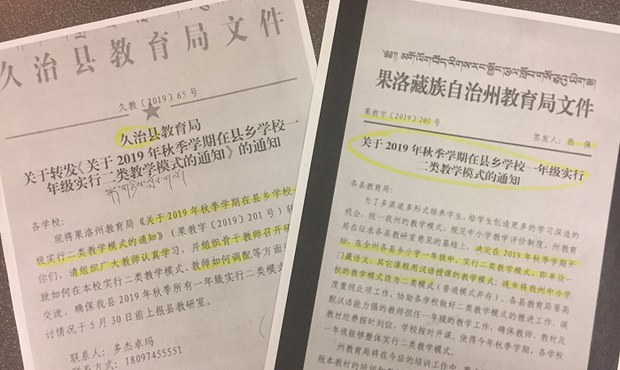 久治县教育局文件
久教〔2019〕65号
久治县教育局
关于转发《关于2019年秋季学期在县乡学校一
年级实行二类教学模式的通知》的通知
各学校:
现将果洛州教育局《关于2019年秋季学期在县乡学校一
级实行二类教学模式的通知》(果教字〔2019〕201号)转
你们,请组织广大教师认真学习,并组织骨干教师召开研
就如何在本校实行二类教学模式、教师如何调配等方面
交流,确保我县2019年秋季所有一年级实行二类模式
讨情况于5月30日前上报县教研室。
联系人:多杰卓玛
联系方式:18097455551
果洛藏族自治州教育局文件
果教字〔2019〕201号
签发人:
关于2019年秋季学期在县乡学校一年级实行
二类教学模式的通知
各县教育局:
为了多渠道多形式培养学生,给学生创造更多的学习深造的
机会,统一我州的教学模式,规范中小学教学评价制度,州教育
局在征求各县教研室意见的基础上,决定在2019年秋季学期开
始,在全州各县乡小学一年级中,实行二类教学模式,即单设一
门藏语文,其它课程用汉语授课的教学模式;逐步将我州中小学
校的教学模式改为二类模式(普通模式并存)。各县教育局要高
度重视此项工作,协助各学校做好二类教学模式的推进工作,调
配汉语能力强的教师担任一年级的教学工作,确保教师、教材及
教材经费按时到位,学校按时开课,使得今年秋季学期,各学校
一年级能够整体实行二类教学模式。
州教育局将在今后的培训工作中,
版本教材的培训